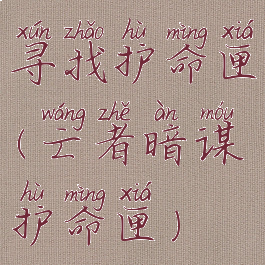 xún zhǎo hù mìng xiá
寻找护命匣
wáng zhě àn móu
(亡者暗谋
hù mìng xiá
护命匣)